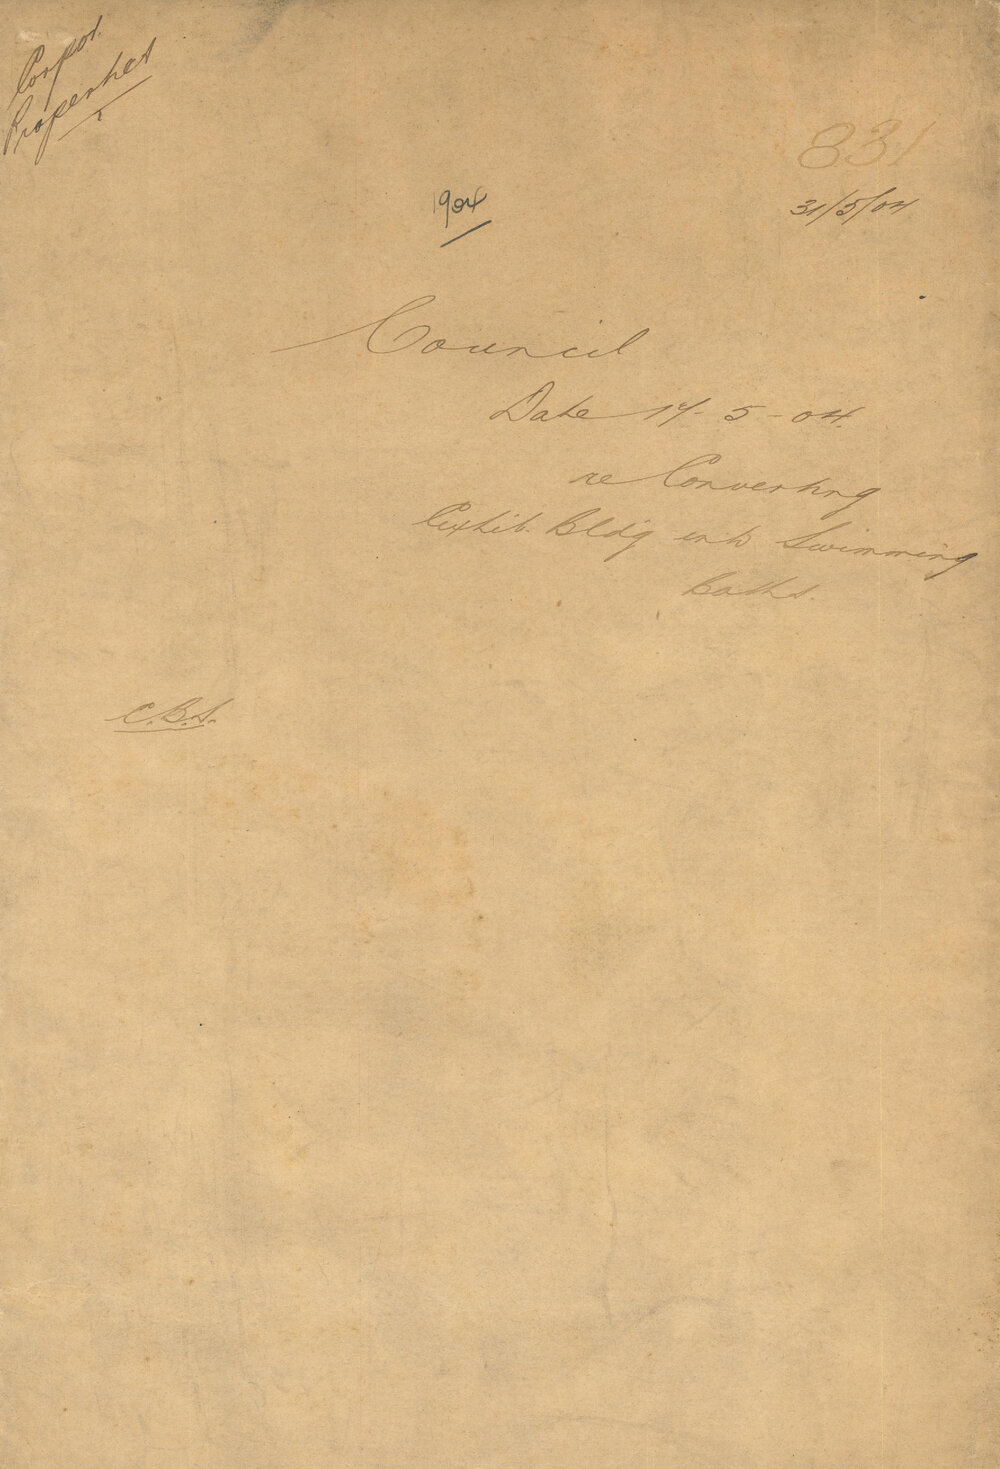 Corpor.
Properties
831
1904
31/5/04
Council
Date 17-5-04.
re Converting
Exhib. Bldg into Swimming
Baths.
C.B.S.